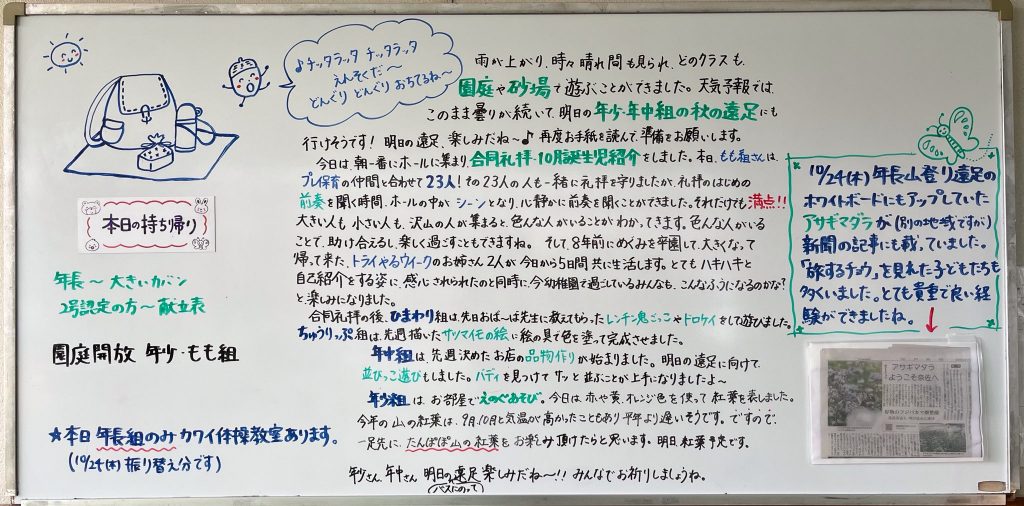 ♪チッタラッタ チッタラッタ
えんそくだ〜
どんぐり どんぐり おちてるね〜
雨が上がり、時々晴れ間も見られ、どのクラスも、
園庭や砂場で遊ぶことができました。天気予報では、
このまま曇りが続いて、明日の年少・年中組の秋の遠足にも
行けそうです！明日の遠足、楽しみだね〜♪再度お手紙を読んで、準備をお願いします。
今日は、朝一番にホールに集まり、合同礼拝・10月誕生児紹介をしました。本日、もも組さんは、
プレ保育の仲間と合わせて23人！その23人の人も一緒に礼拝を守りましたが、礼拝のはじめの
前奏を聞く時間、ホールの中がシーンとなり、心静かに前奏を聞くことができました。それだけでも満点!!
大きい人も、小さい人も、沢山の人が集まると、色んな人がいることがわかってきます。色んな人がいる
ことで、助け合えるし、楽しく過ごすこともできますね。そして、8年前にめぐみを卒園して、大きくなって
帰って来た、トライやるウィークのお姉さん2人が今日から5日間共に生活します。とてもハキハキと
自己紹介をする姿に、感心させられたのと同時に、今幼稚園で過ごしているみんなも、こんなふうになるのかな？
と楽しみになりました。
合同礼拝の後、ひまわり組は、先日おばっぱ先生に教えてもらったレンチン鬼ごっこやドロケイをして遊びました。
ちゅうりっぷ組は、先週描いたサツマイモの絵に絵の具で色を塗って完成させました。
年中組は、先週決めたお店の品物作りが始まりました。明日の遠足に向けて、
並びっこ遊びもしました。バディを見つけてサッと並ぶことが上手になりましたよ〜
年少組は、お部屋でえのぐあそび。今日は、赤や黄、オレンジ色を使って紅葉を表しました。
今年の山の紅葉は、9月、10月と気温が高かったこともあり平年より遅いそうです。ですので、
一足先に、たんぽぽ山の紅葉をお楽しみ頂けたらと思います。明日紅葉予定です。
年少さん、年中さん 明日の遠足楽しみだね〜!!みんなでお祈りしましょうね。
(バスにのって)
本日の持ち帰り
年長〜大きいカバン
2号認定の方〜献立表
園庭開放 年少・もも組
★本日年長組のみカワイ体操教室あります。
(10/24(木)振り替え分です)
10/24(木)年長山登り遠足の
ホワイトボードにもアップしていた
アサギマダラが(別の地域ですが)
新聞の記事にも載っていました。
「旅するチョウ」を見れた子どもたちも
多くいました。とても貴重で良い経
験ができましたね。↓
アサギマダラ
ようこそ奈佐へ